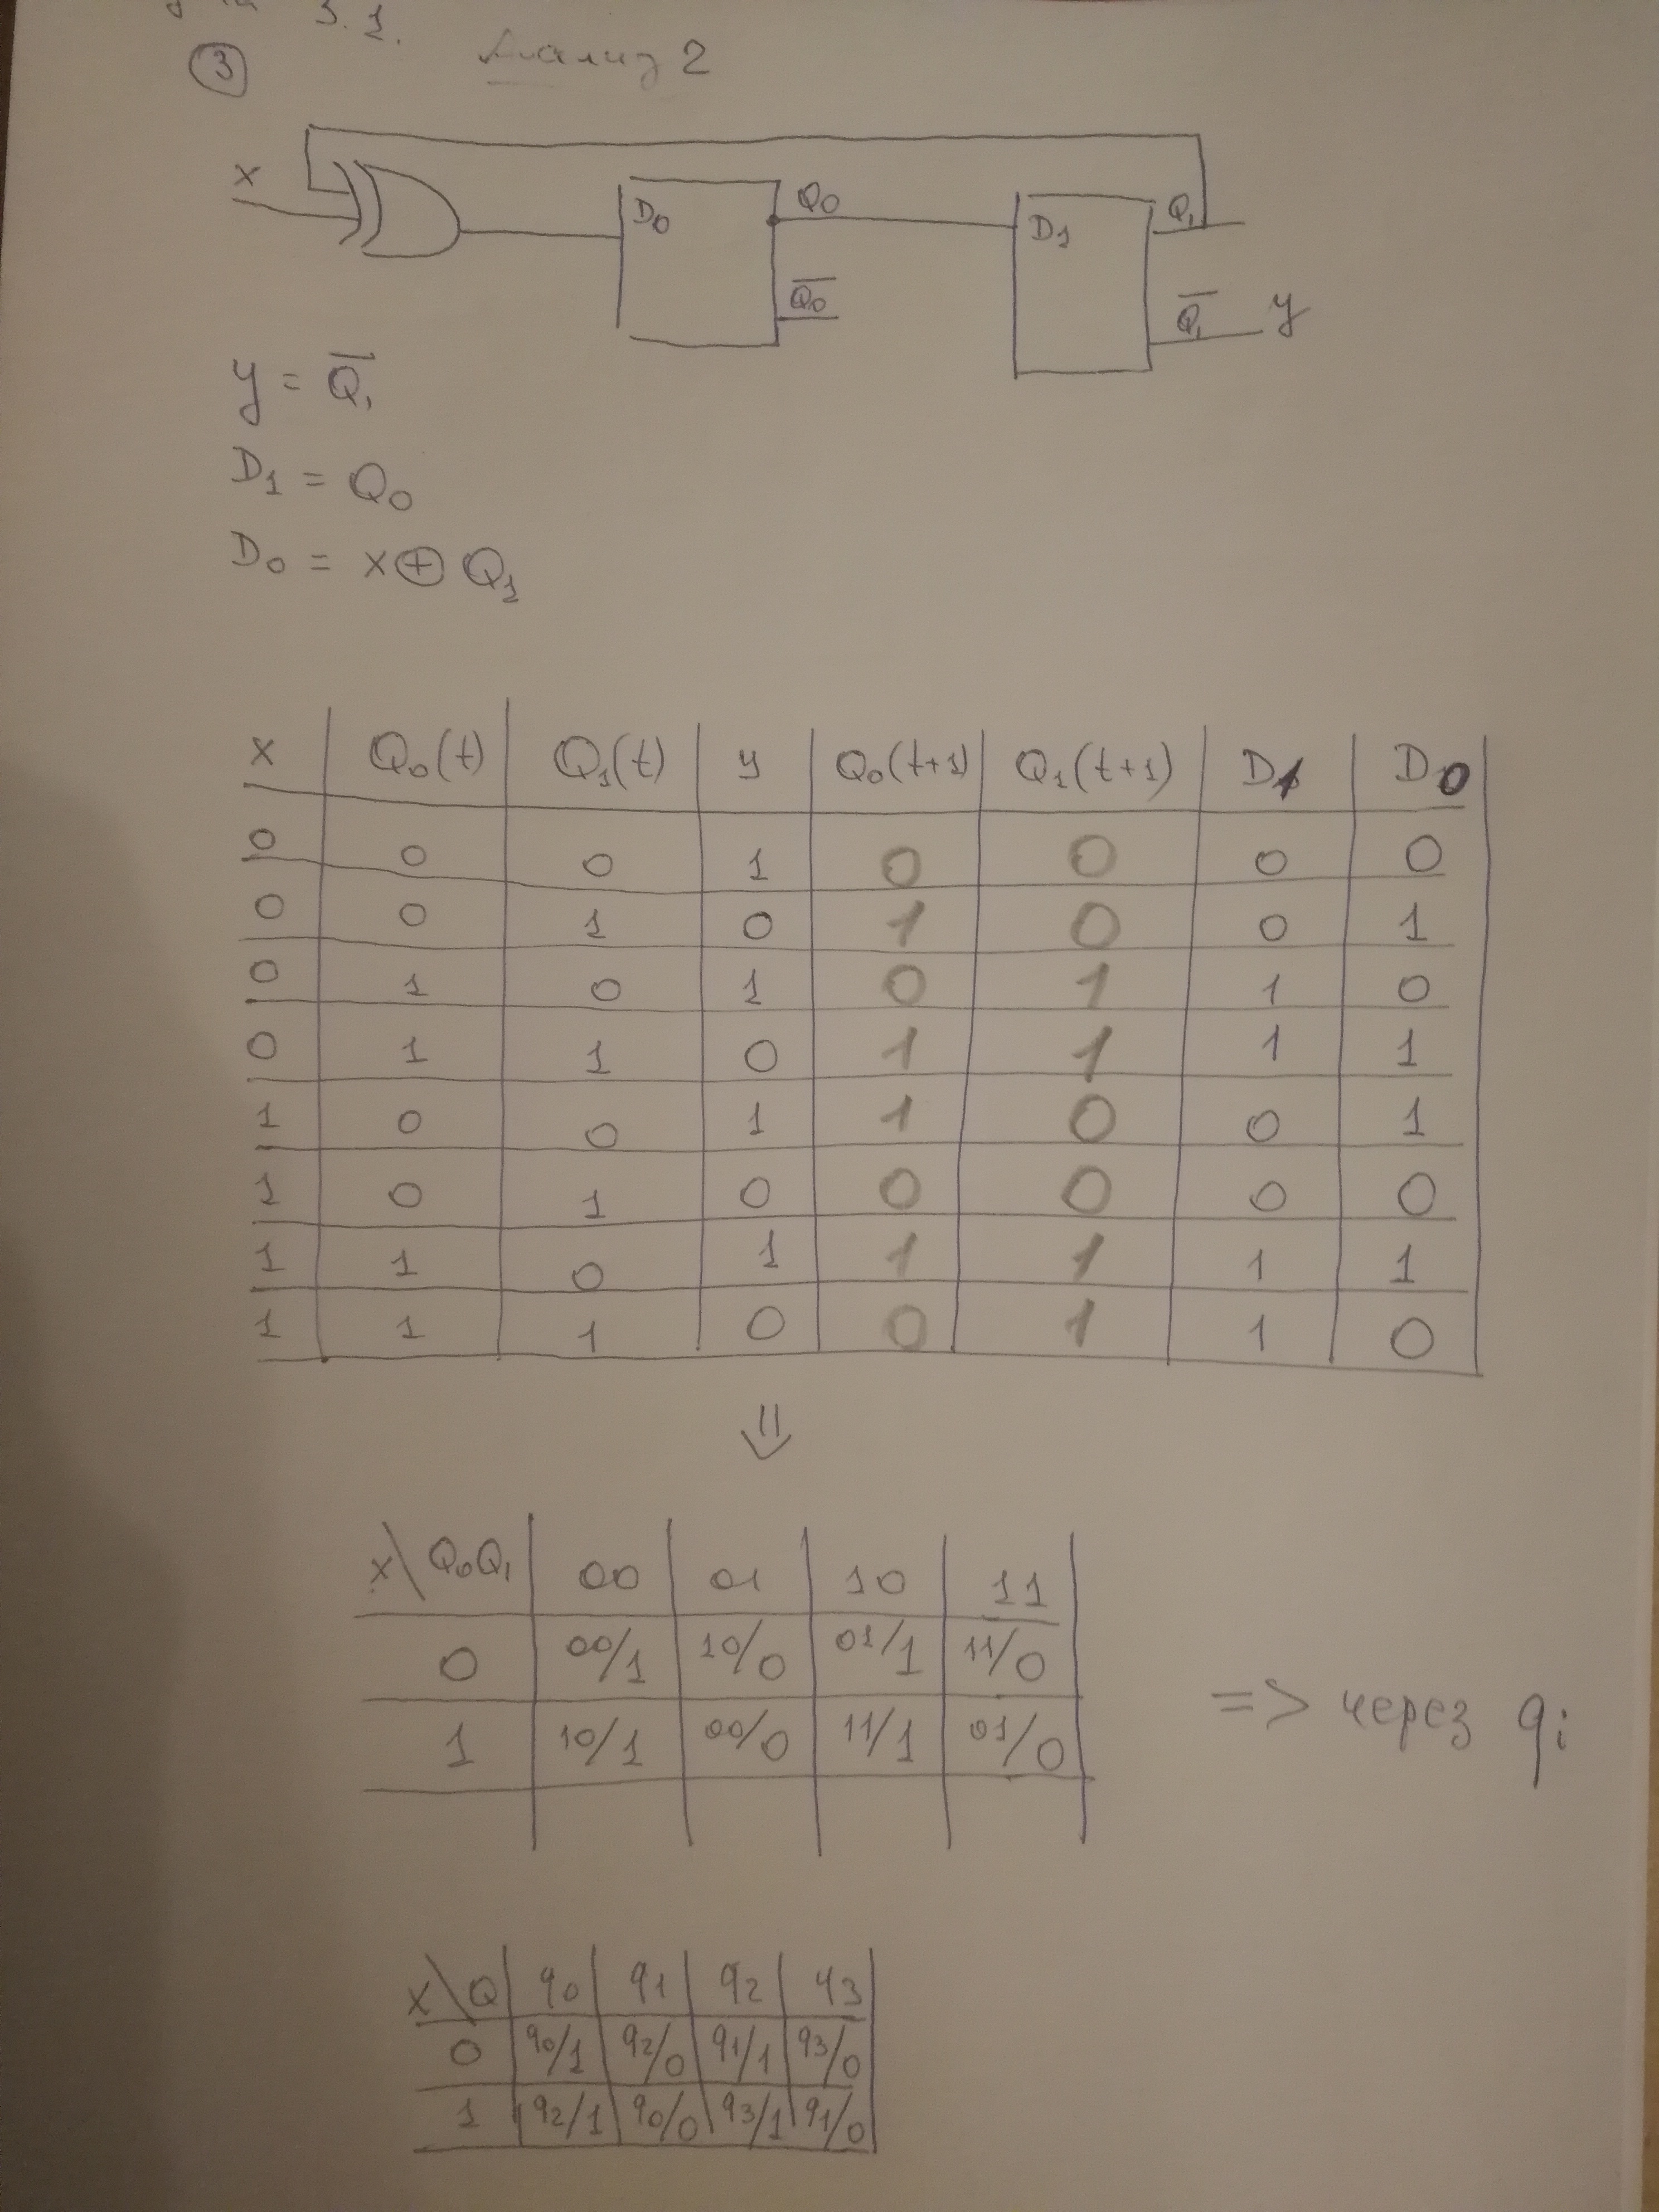 3.1.
③ Анализ 2
x D₀ Q₀ D₁ Q₁
Q̅₀ Q̅₁ y
y = Q̅₁
D₁ = Q₀
D₀ = x ⊕ Q₁
x | Q₀(t) | Q₁(t) | y | Q₀(t+1) | Q₁(t+1) | D₁ | D₀
0 | 0 | 0 | 1 | 0 | 0 | 0 | 0
0 | 0 | 1 | 0 | 1 | 0 | 0 | 1
0 | 1 | 0 | 1 | 0 | 1 | 1 | 0
0 | 1 | 1 | 0 | 1 | 1 | 1 | 1
1 | 0 | 0 | 1 | 1 | 0 | 0 | 1
1 | 0 | 1 | 0 | 0 | 0 | 0 | 0
1 | 1 | 0 | 1 | 1 | 1 | 1 | 1
1 | 1 | 1 | 0 | 0 | 1 | 1 | 0
⇓
x\Q₀Q₁ | 00 | 01 | 10 | 11
0 | 00/1 | 10/0 | 01/1 | 11/0
1 | 10/1 | 00/0 | 11/1 | 01/0
=> через qi
x\Q | q₀ | q₁ | q₂ | q₃
0 | q₀/1 | q₂/0 | q₁/1 | q₃/0
1 | q₂/1 | q₀/0 | q₃/1 | q₁/0